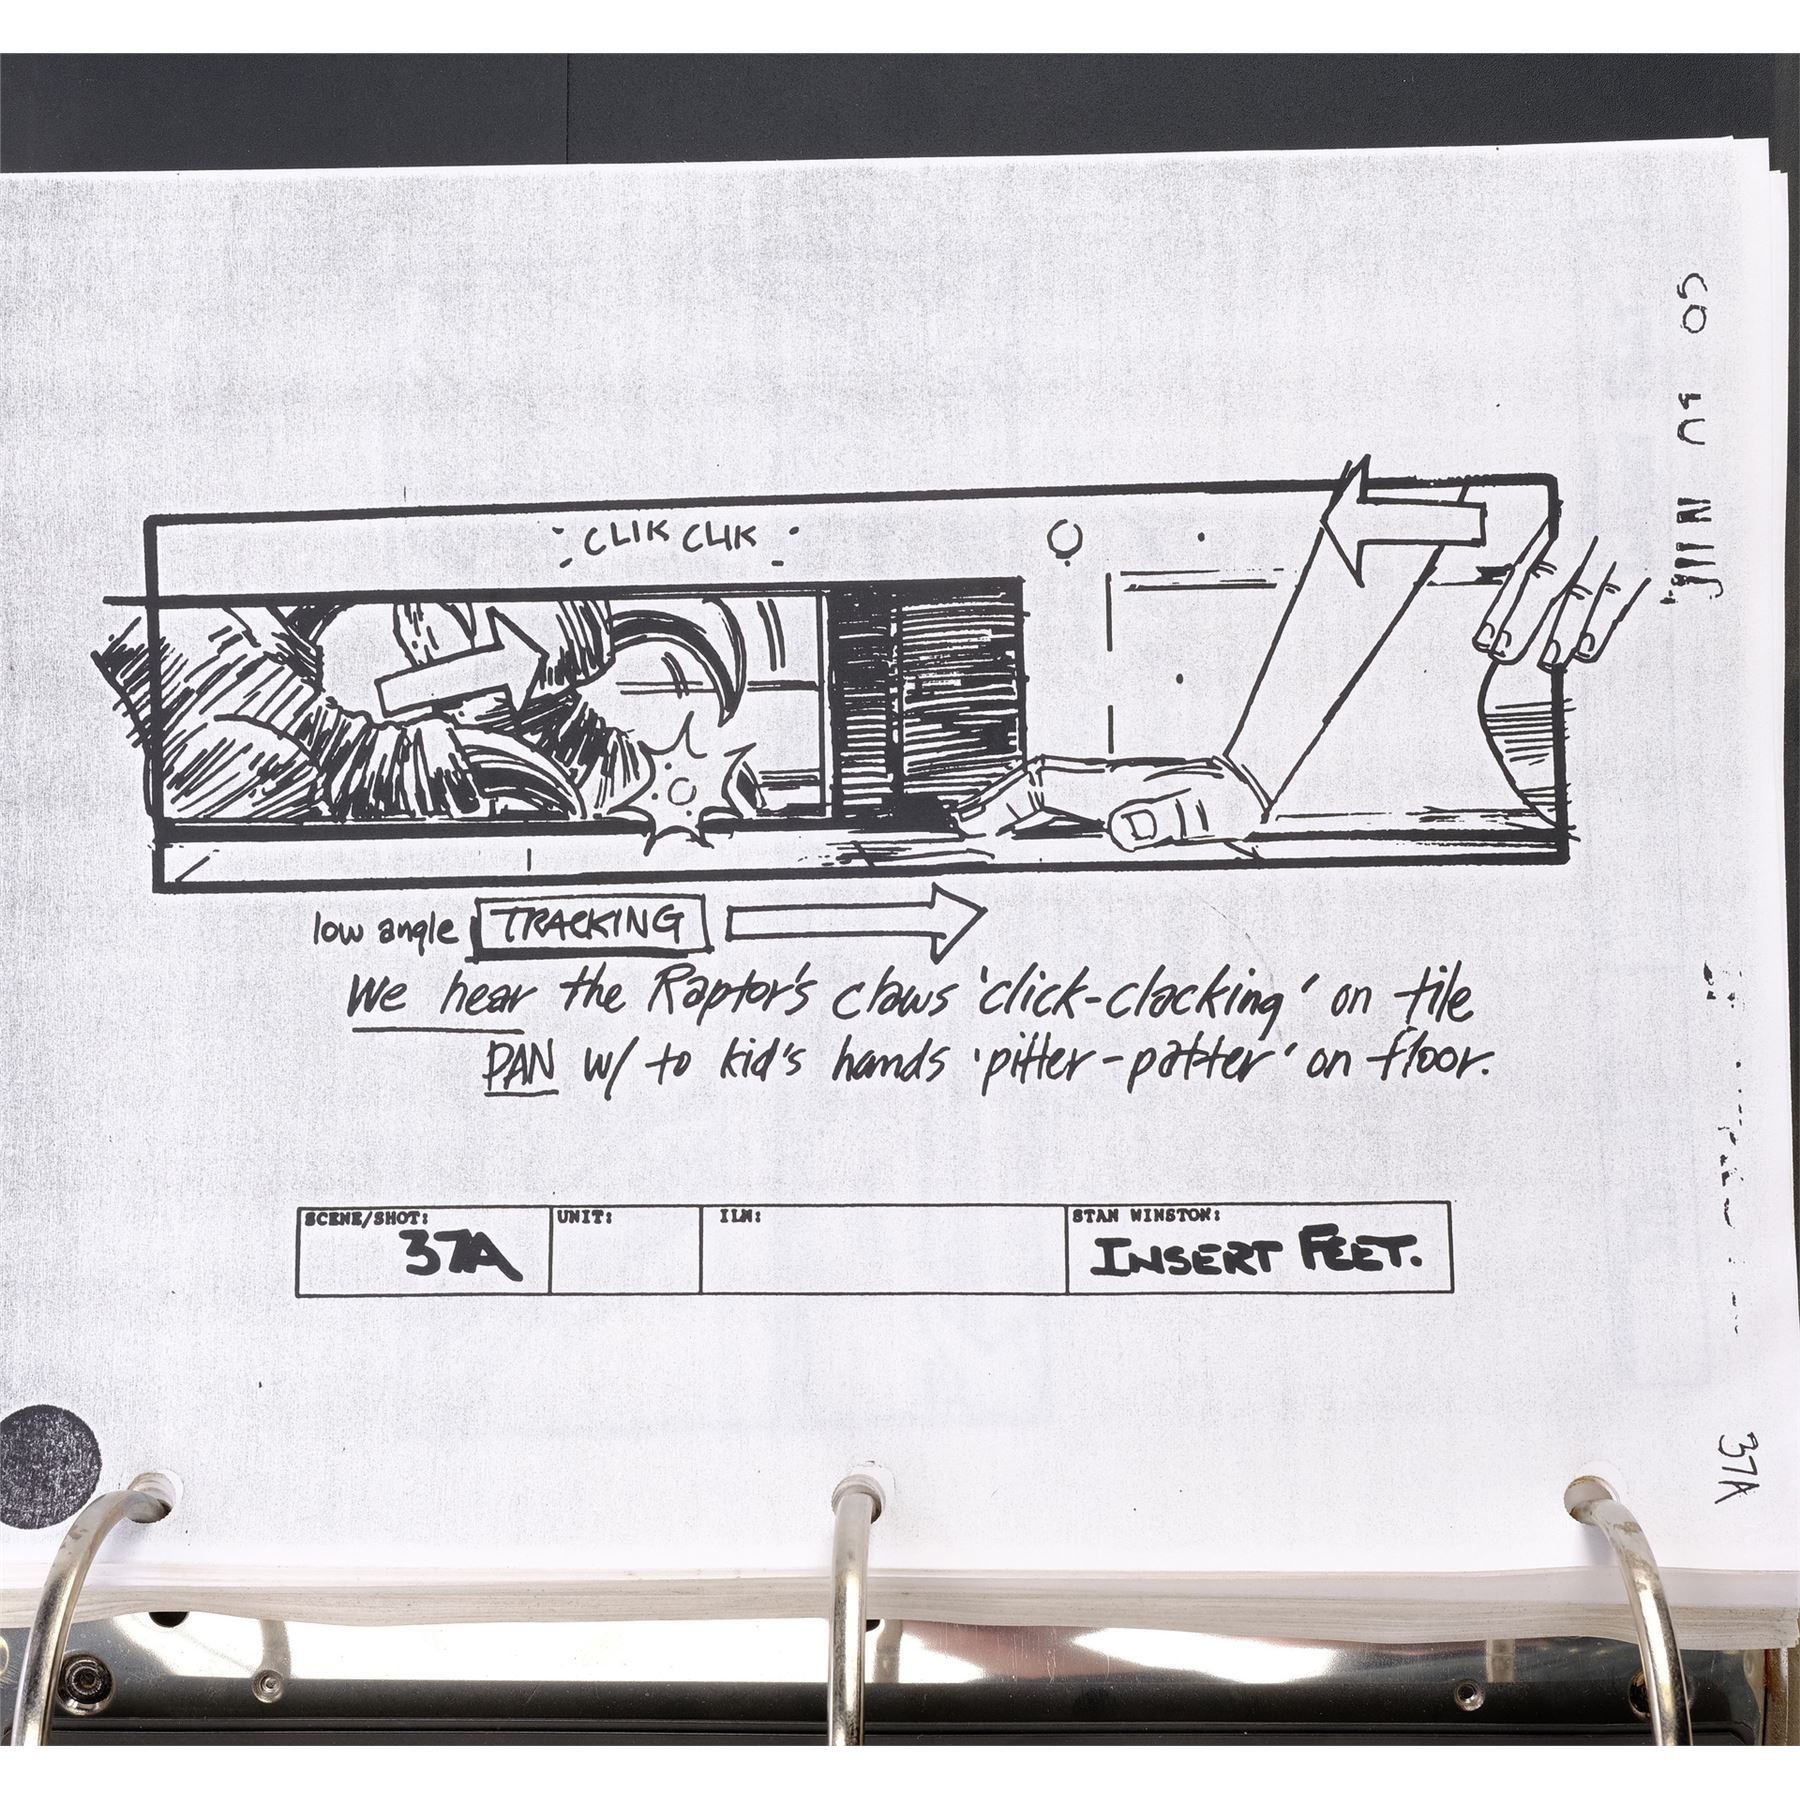 CLIK CLIK
low angle TRACKING
We hear the Raptor's claws 'click-clacking' on tile
PAN w/ to kid's hands 'pitter-patter' on floor.
SCENE/SHOT: UNIT: ILM: STAN WINSTON:
37A INSERT FEET.
37A